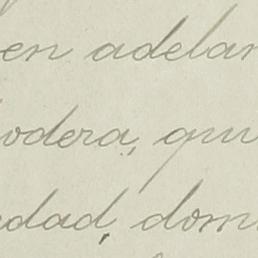 en adelan
odera, qui
edad, domi